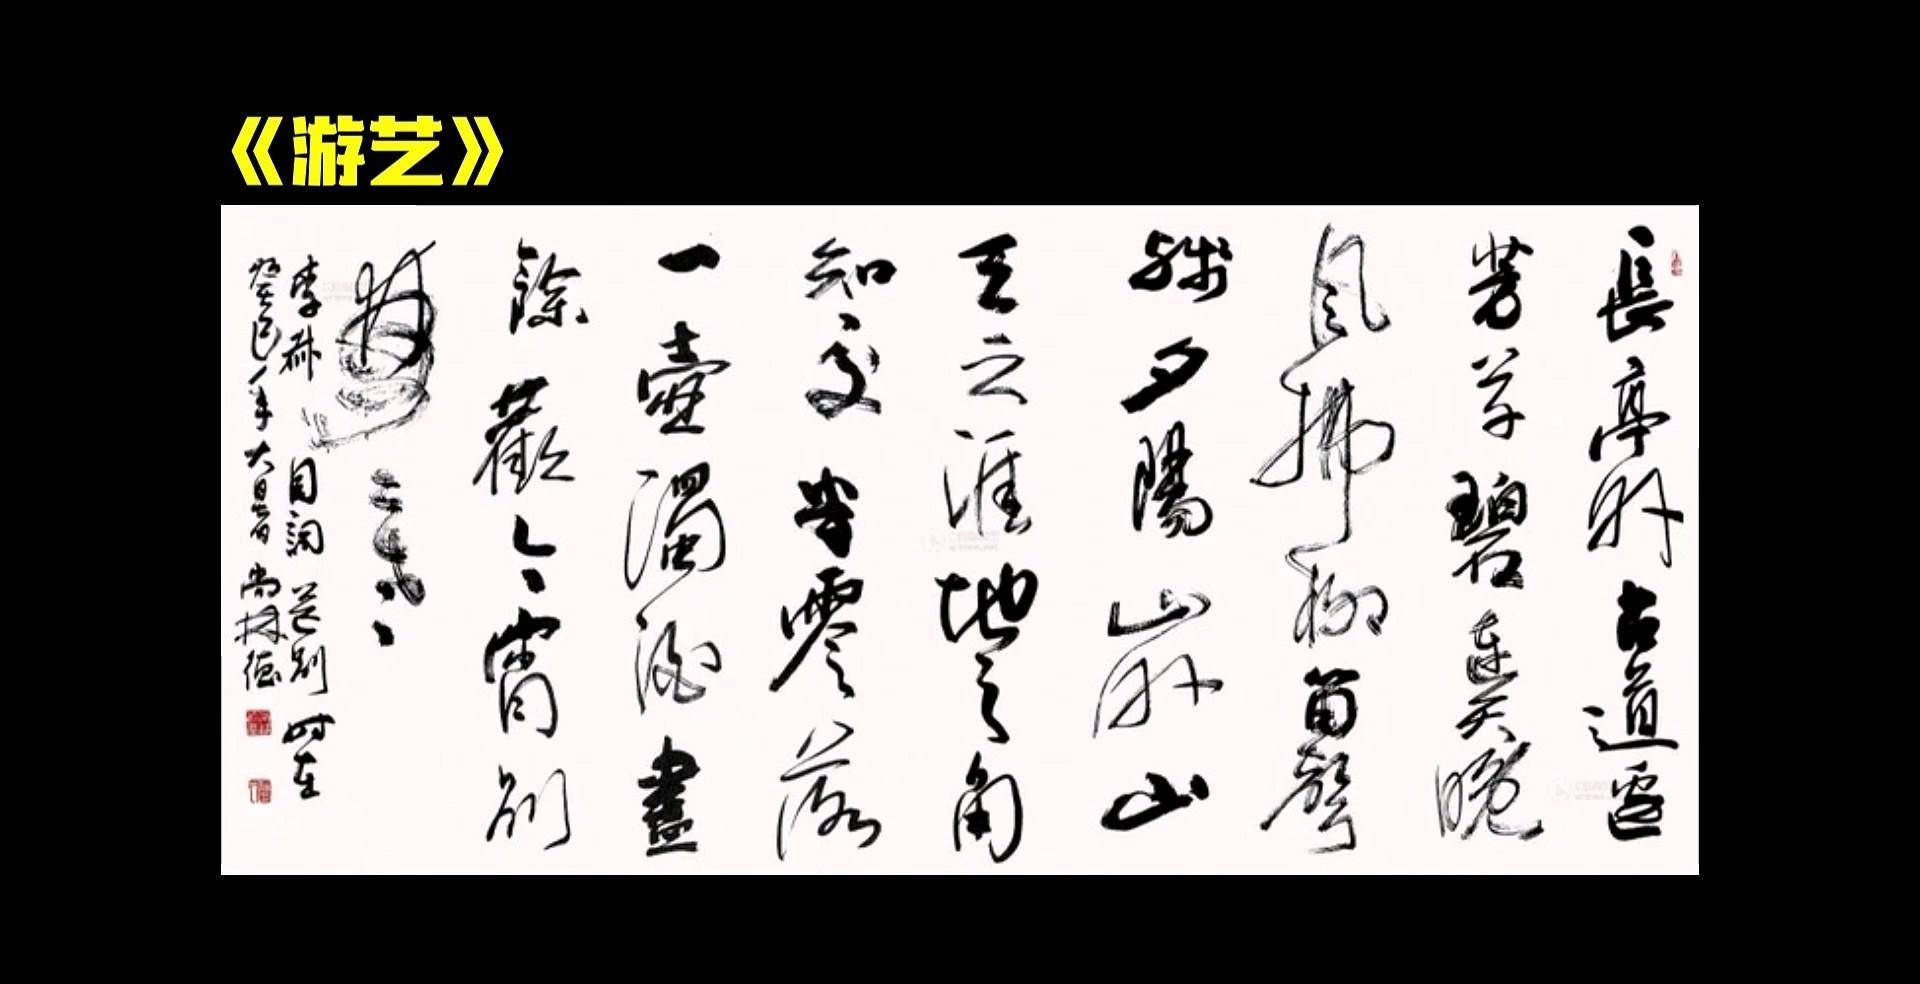 《游艺》
長亭外古道邊
芳草碧連天晚
風拂柳笛聲
殘夕陽山外山
天之涯地之角
知交半零落
一壺濁酒盡
餘歡今宵別
夢寒
李叔同詞送別时在
癸巳年大暑尚林德